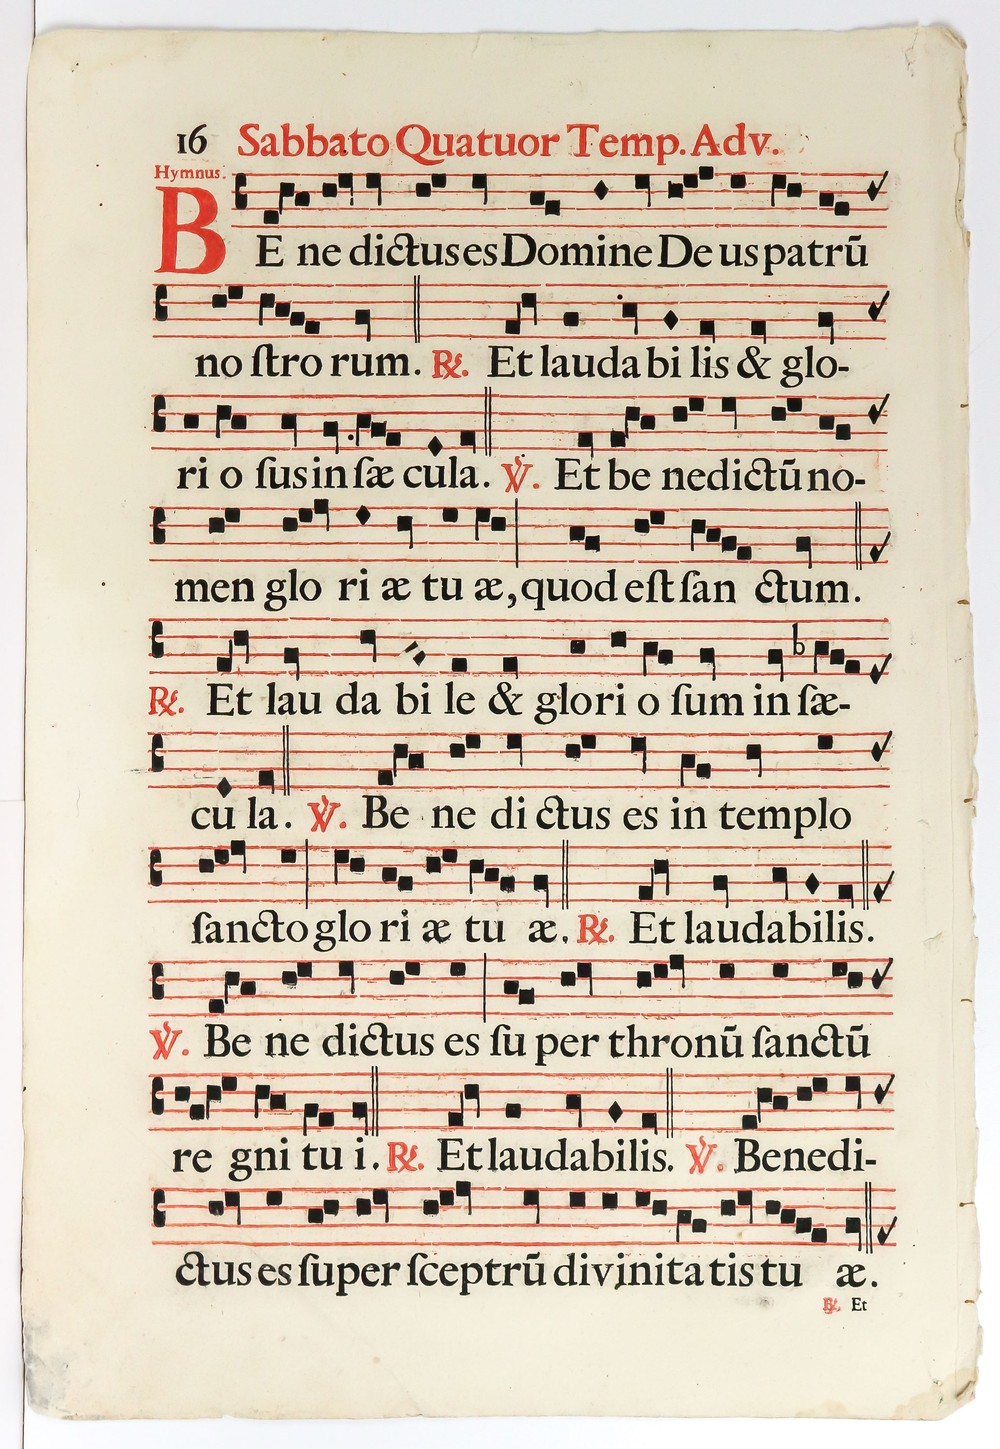 16 Sabbato Quatuor Temp. Adv.
Hymnus.
BE ne dictus es Domine De us patrū
no ſtro rum. ℟. Et lauda bi lis & glo-
ri o ſus in ſæ cula. ℣. Et be nedictū no-
men glo ri æ tu æ, quod eſt ſan ctum.
℟. Et lau da bi le & glori o ſum in ſæ-
cu la. ℣. Be ne di ctus es in templo
ſancto glo ri æ tu æ. ℟. Et laudabilis.
℣. Be ne dictus es ſu per thronū ſanctū
re gni tu i. ℟. Et laudabilis. ℣. Benedi-
ctus es ſuper ſceptrū divinita tis tu æ.
℟. Et